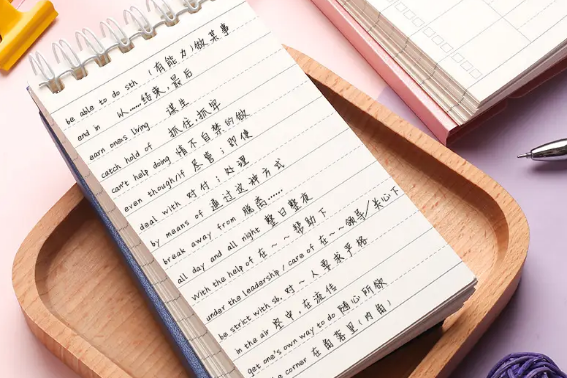 be able to do sth (有能力)做某事
end in 以……结束,最后
earn one's living 谋生
catch hold of 抓住,抓牢
can't help doing 情不自禁的做
even though/if 尽管;即使
deal with 对付;处理
by means of 通过这种方式
break away from 脱离……
all day and all night 整日整夜
With the help of 在~~帮助下
under the leadership/care of 在~~领导/关心下
be strict with sb. 对~人要求严格
in the air 空中,在流传
get one's own way to do 随心所欲
corner 在角落里(内角)